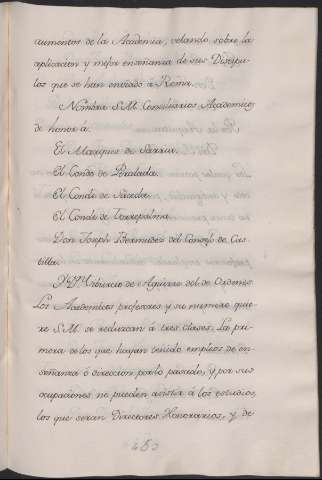 aumentos de la Academia, velando sobre la
aplicacion y mejor enseñanza de sus Discipu-
los que se han enviado à Roma.
Nombra S.M. Consiliarios Academicos
de honor à
El Marques de Sarria.
El Conde de Peralada.
El Conde de Saceda.
El Conde de Torrepalma.
Don Joseph Bermudez del Consejo de Cas-
tilla.
Y Dn. Tiburcio de Aguirre del de Ordenes.
Los Academicos profesores y su numero quie-
re S.M. se reduzcan à tres clases. La pri-
mera de los que hayan tenido empleos de en-
señanza ò direccion por lo pasado, y por sus
ocupaciones no pueden asistir à los estudios,
los que seran Directores Honorarios, y de